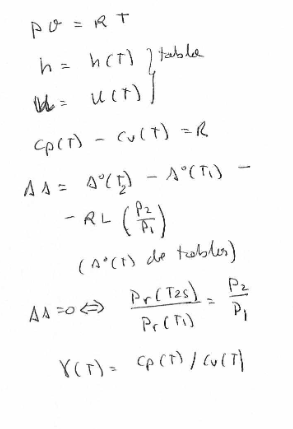 p v = R T
h = h(T) } tabla
u = u(T)
Cp(T) - Cv(T) = R
Δs = s°(T2) - s°(T1) -
- R L (P2/P1)
(s°(T) de tablas)
Δs = 0 ⇔ Pr(T2s)/Pr(T1) = P2/P1
γ(T) = Cp(T) / Cv(T)